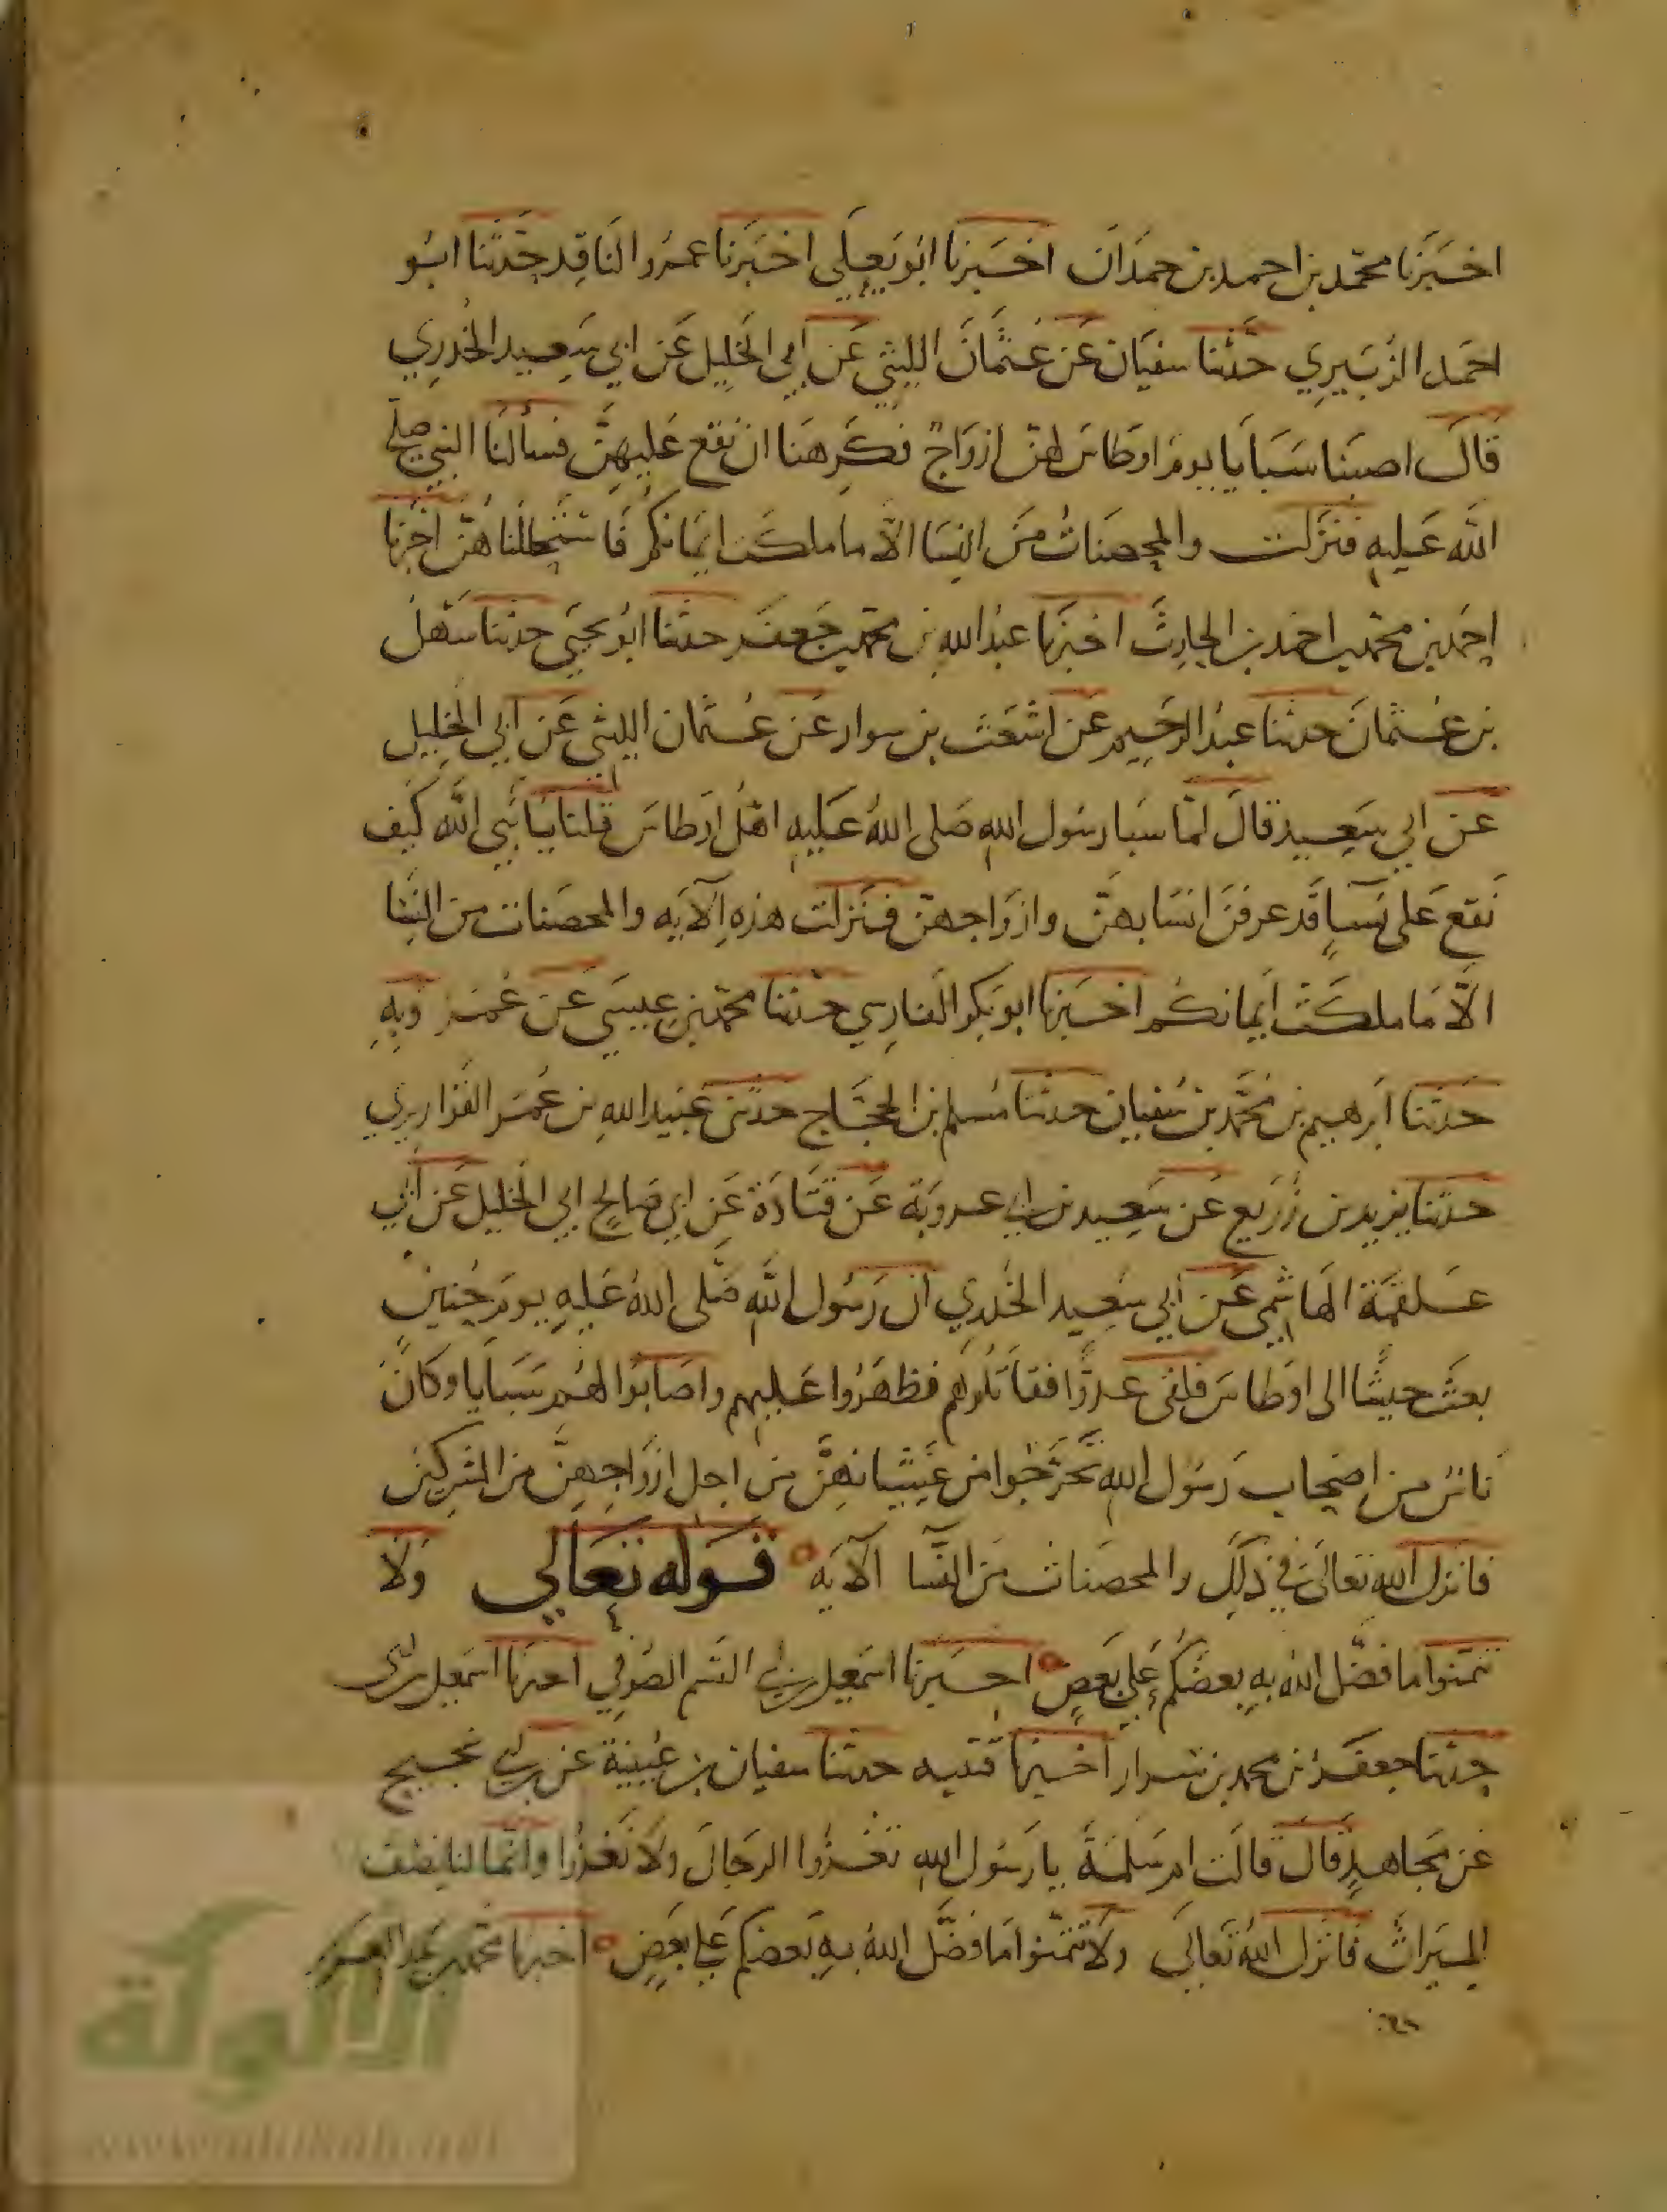 اخبرنا محمد بن احمد بن حمدان اخبرنا ابو يعلى اخبرنا عمرو الناقد حدثنا ابو
احمد الزبيري حدثنا سفيان عن عثمان الليثي عن ابي الخليل عن ابي سعيد الخدري
قال اصبنا سبايا يوم اوطاس لهن ازواج فكرهنا ان نقع عليهن فسألنا النبي صلى
الله عليه فنزلت والمحصنات من النسا الا ما ملكت ايمانكم فاستحللناهن اخبرنا
احمد بن محمد بن احمد بن الحارث اخبرنا عبد الله بن محمد بن جعفر حدثنا ابو يحيى حدثنا سهل
بن عثمان حدثنا عبد الرحيم عن اشعث بن سوار عن عثمان الليثي عن ابي الخليل
عن ابي سعيد قال لما سبا رسول الله صلى الله عليه اهل اوطاس قلنا يا نبي الله كيف
نقع على نسآ قد عرفن انسابهن وازواجهن فنزلت هذه الآيه والمحصنات من النسا
الا ما ملكت ايمانكم اخبرنا ابو بكر الفارسي حدثنا محمد بن عيسى عن عمرويه
حدثنا ابرهيم بن محمد بن سفيان حدثنا مسلم بن الحجاج حدثني عبيد الله بن عمر القواريري
حدثنا يزيد بن زريع عن سعيد بن ابي عروبة عن قتادة عن ابي صالح ابي الخليل عن ابي
علقمة الهاشمي عن ابي سعيد الخدري ان رسول الله صلى الله عليه يوم حنين
بعث جيشا الى اوطاس فلقي عدوا فقاتلوهم فظهروا عليهم واصابوا لهم سبايا وكان
ناس من اصحاب رسول الله تحرجوا من غشيانهن من اجل ازواجهن من المشركين
فانزل الله تعالى في ذلك والمحصنات من النسا الآيه قوله تعالى ولا
تتمنوا ما فضل الله به بعضكم على بعض اخبرنا اسمعيل بن ابي القسم الصوفي اخبرنا اسمعيل بن
حدثنا جعفر بن محمد بن سوار اخبرنا قتيبه حدثنا سفيان بن عيينة عن بن ابي نجيح
عن مجاهد قال قالت ام سلمة يا رسول الله تغزوا الرجال ولا نغزوا وانما لنا نصف
الميراث فانزل الله تعالى ولا تتمنوا ما فضل الله به بعضكم على بعض اخبرنا محمد بن عبد العزيز